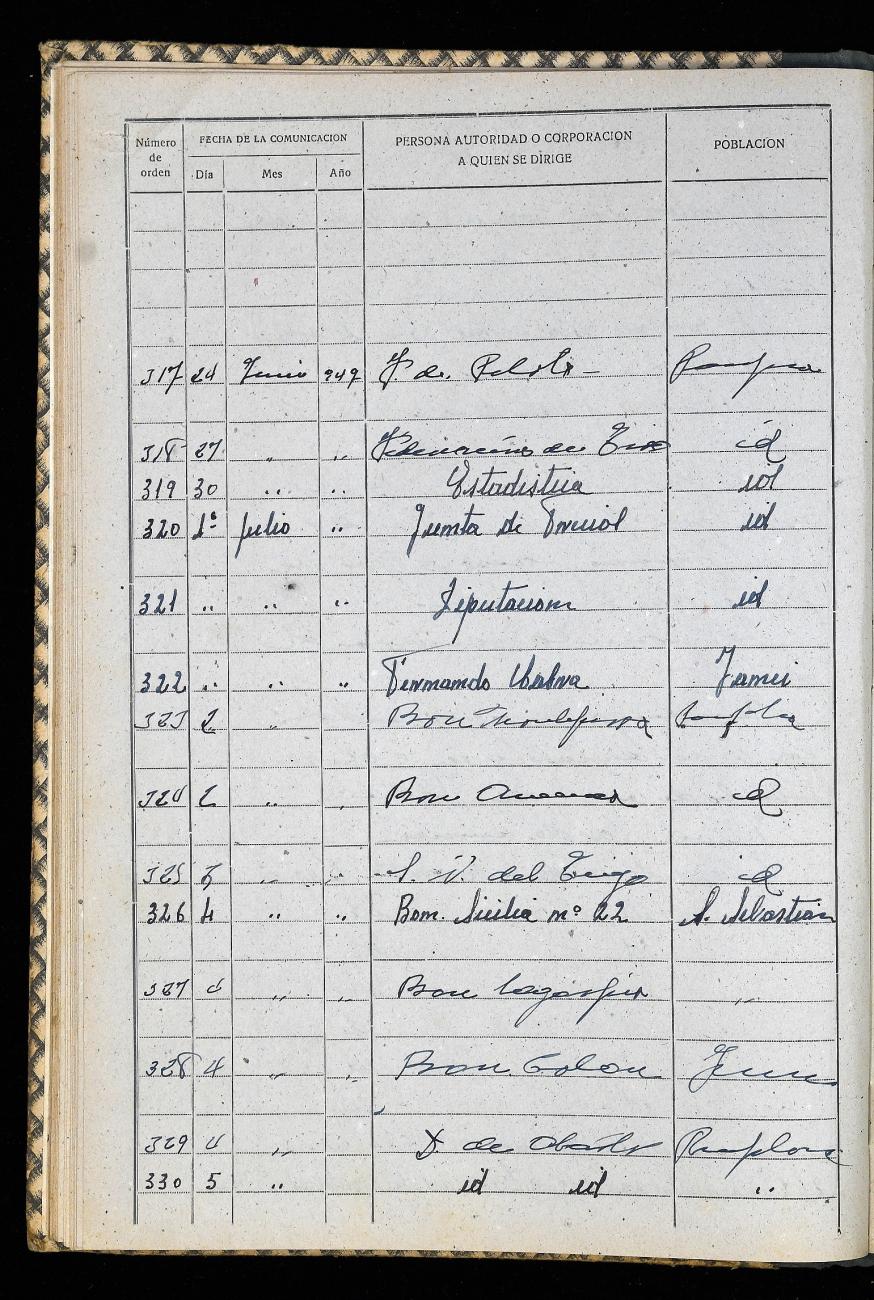 Número de orden FECHA DE LA COMUNICACION PERSONA AUTORIDAD O CORPORACION A QUIEN SE DIRIGE POBLACION
Día Mes Año
317 24 Junio 949 F. de Pelota - Pamplona
318 27 " " Federación de Tiro id
319 30 " " Estadistica id
320 1º julio " Junta de Provicial id
321 " " " Diputacion id
322 " " " Fernando
323 2 " Bon Montejurra Pamplona
324 2 " " Bon America id
325 3 " " S. V. del id
326 4 " " Bon. Sicilia nº 22 S. Sebastian
327 4 " " Bon "
328 4 " " Bon Colon Irun
329 4 " D. de Pamplona
330 5 " id id "